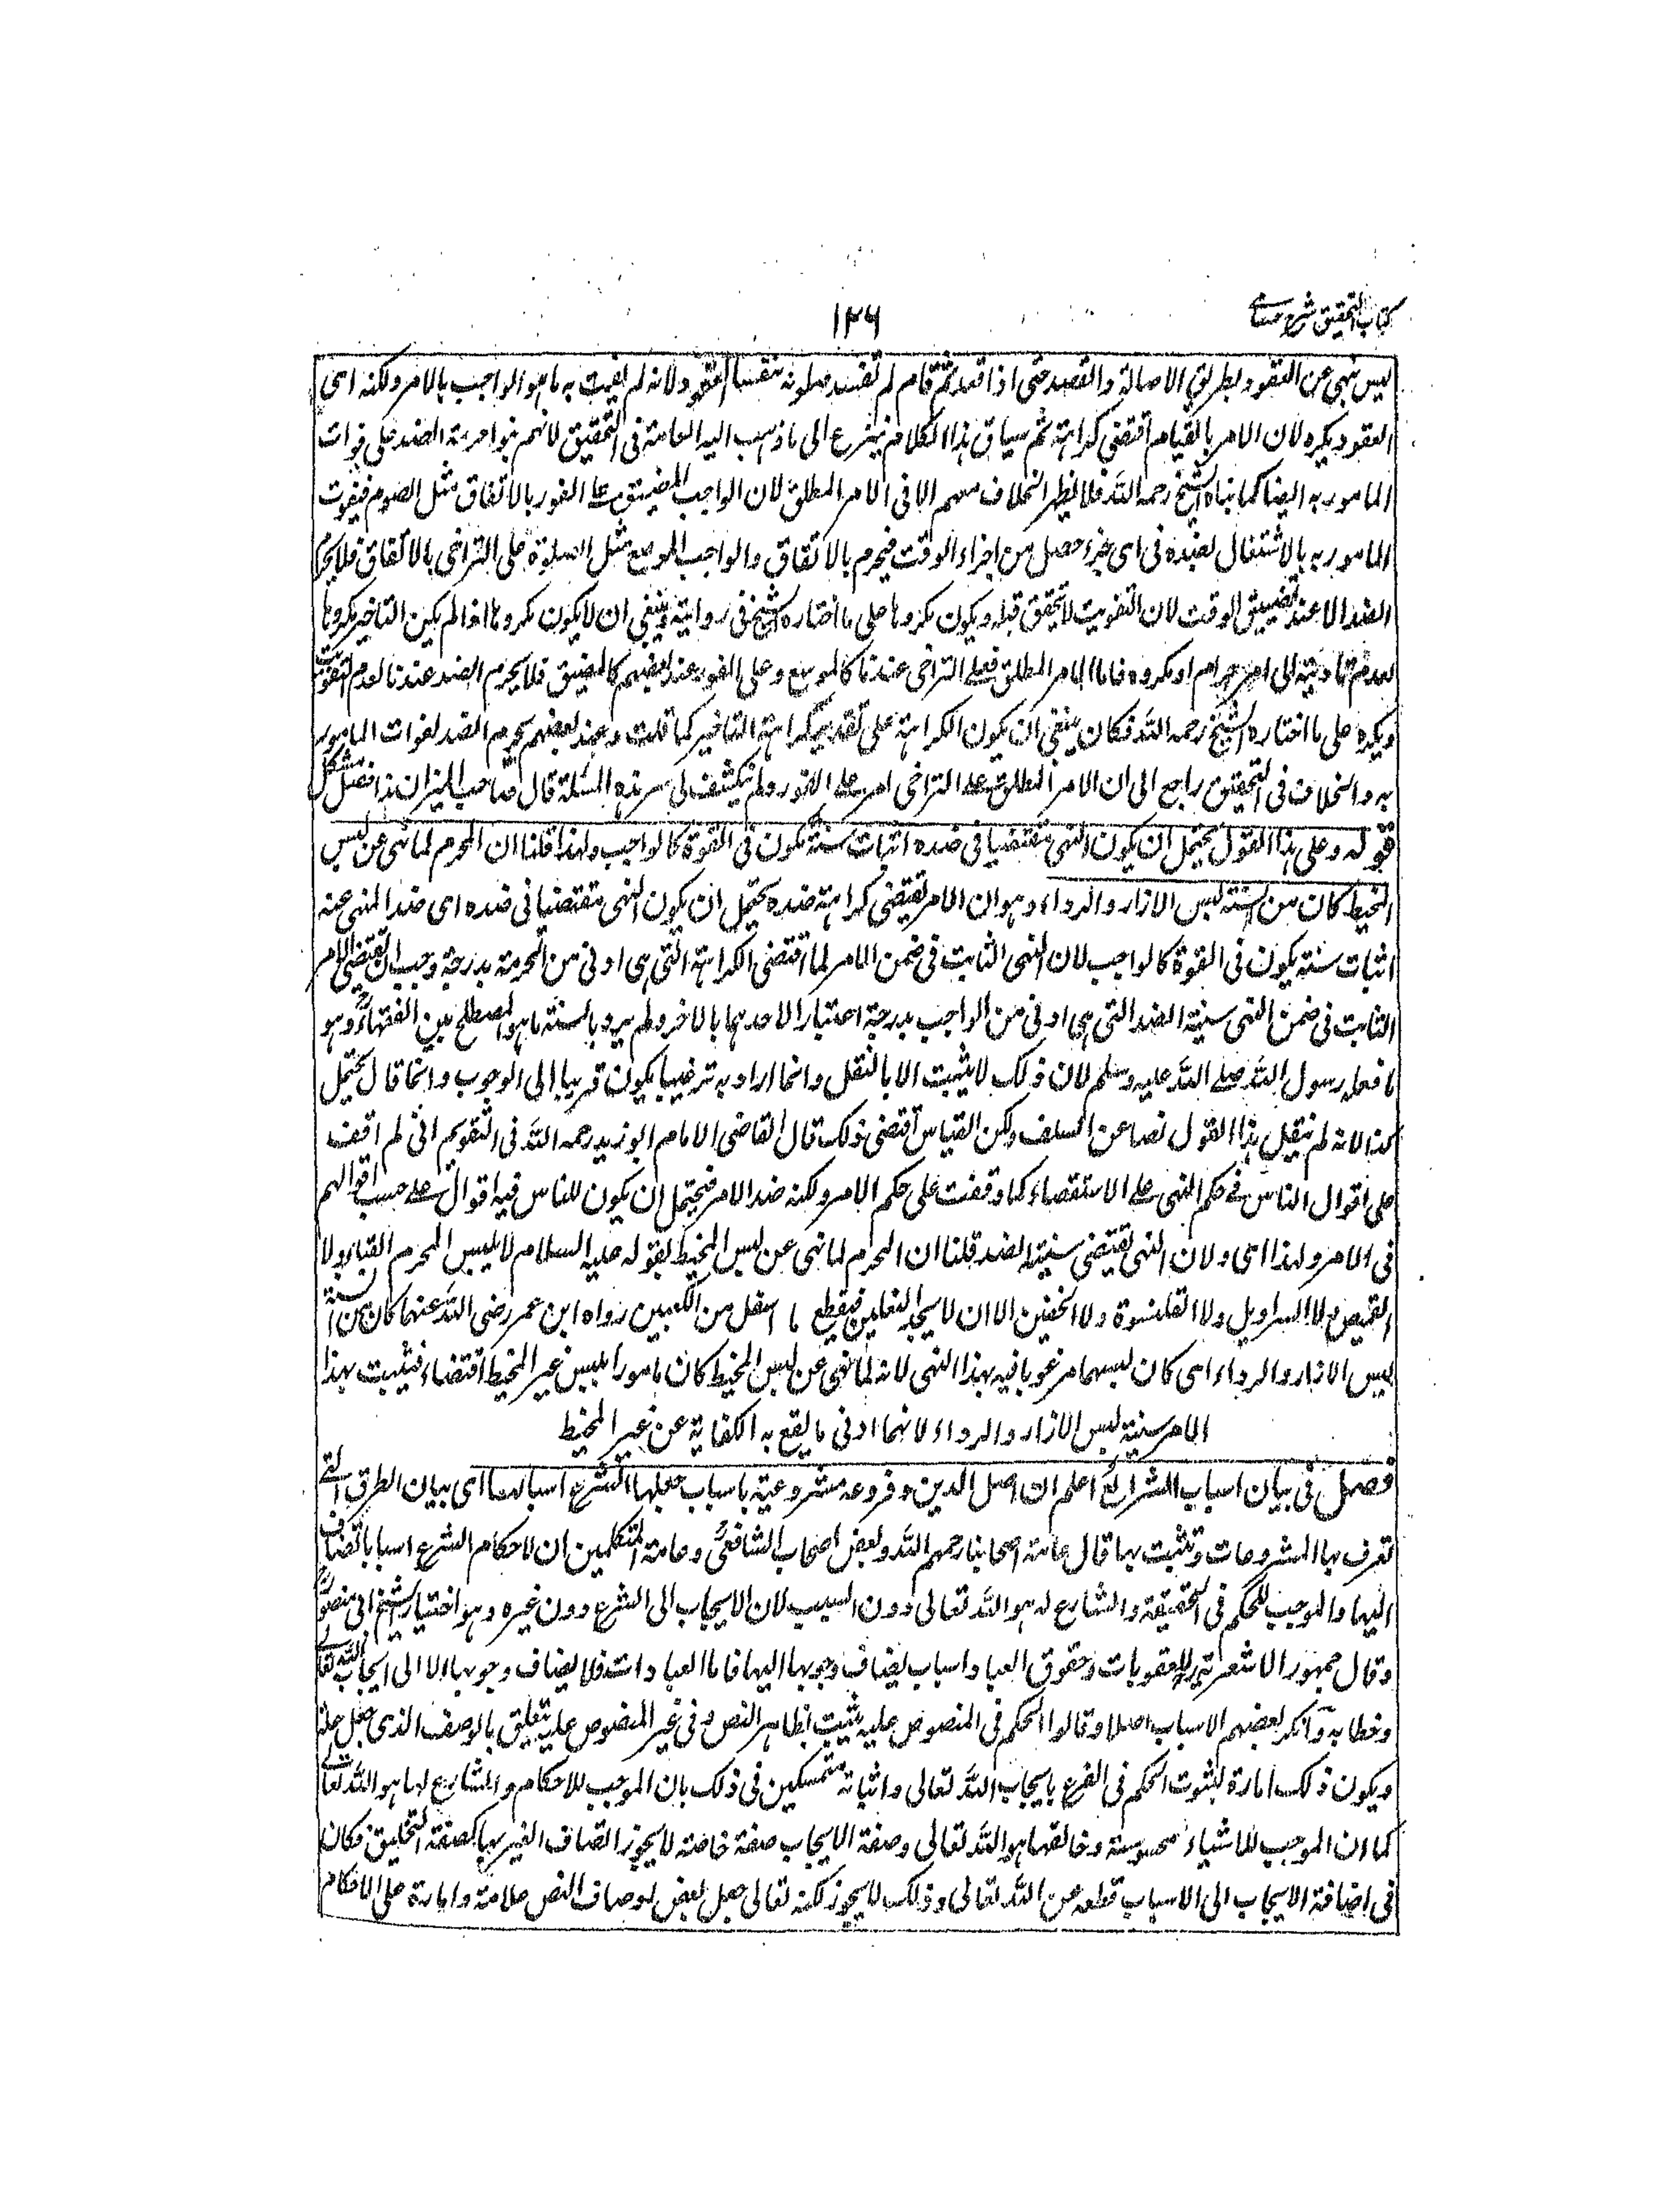 كتاب التحقيق شرح حسامى
١٢٦
ليس بنهي عن القعود بطريق الاصالة والقصد حتى اذا قعد ثم قام لم تفسد صلوته بنفس القعود ولانه لم يفت به ما هو الواجب بالامر ولكنه اى
القعود يكره لان الامر بالقيام اقتضى كراهته ثم سياق هذا الكلام ينزع الى ما ذهب اليه العامة فى التحقيق لانهم بنوا حرمة الضد على فوات
المامور به ايضا كما بناه الشيخ رحمه الله فلا يظهر الخلاف معهم الا فى الامر المطلق لان الواجب المضيق على الفور بالاتفاق مثل الصوم فيفوت
المامور به بالاشتغال بضده فى اى جزء حصل من اجزاء الوقت فيحرم بالاتفاق والواجب الموسع مثل الصلوة على التراخى بالاتفاق فلا يحرم
الضد الا عند تضييق الوقت لان التفويت لا يتحقق قبله ويكون مكروها على ما اختاره الشيخ فى رواية وينبغى ان لا يكون مكروها اذا لم يكن التاخير مكروها
لعدم تاديته الى امر حرام او مكروه فاما الامر المطلق فعلى التراخى عندنا كالموسع وعلى الفور عند بعضهم كالمضيق فلا يحرم الضد عندنا لعدم التفويت
ويكره على ما اختاره الشيخ رحمه الله فكان ينبغى ان يكون الكراهة على تقدير كراهة التاخير كما قلت وعند بعضهم يحرم الضد لفوات المامور
به والخلاف فى التحقيق راجع الى ان الامر المطلق على التراخى ام على الفور ولم ينكشف لى سر هذه المسئلة قال صاحب الميزان هذا فصل مشكل
قوله وعلى هذا القول يحتمل ان يكون النهى مقتضيا فى ضده اثبات سنة تكون فى القوة كالواجب ولهذا قلنا ان المحرم لما نهى عن لبس
المخيط كان من السنة لبس الازار والرداء وهو ان الامر يقتضى كراهة ضده يحتمل ان يكون النهى مقتضيا فى ضده اى ضد المنهى عنه
اثبات سنة يكون فى القوة كالواجب لان النهى الثابت فى ضمن الامر لما اقتضى الكراهة التى هى ادنى من الحرمة بدرجة وجب ان يقتضى الامر
الثابت فى ضمن النهى سنية الضد التى هى ادنى من الواجب بدرجة اعتبارا لاحدهما بالاخر ولم يرد بالسنة ما هو المصطلح بين الفقهاء وهو
ما فعله رسول الله صلى الله عليه وسلم لان ذلك لا يثبت الا بالنقل وانما اراد به ترغيبا يكون قريبا الى الوجوب وانما قال يحتمل
كذا لانه لم ينقل هذا القول نصا عن السلف ولكن القياس اقتضى ذلك قال القاضى الامام ابو زيد رحمه الله فى التقويم انى لم اقف
على اقوال الناس فى حكم النهى على الاستقصاء كما وقفت على حكم الامر ولكنه ضد الامر فيحتمل ان يكون للناس فيه اقوال على حسب اقوالهم
فى الامر ولهذا اى ولان النهى يقتضى سنية الضد قلنا ان المحرم لما نهى عن لبس المخيط بقوله عليه السلام لا يلبس المحرم القباء ولا
القميص ولا السراويل ولا القلنسوة ولا الخفين الا ان لا يجد النعلين فيقطع ما اسفل من الكعبين رواه ابن عمر رضى الله عنهما كان من السنة
لبس الازار والرداء اى كان لبسهما مرغوبا فيه بهذا النهى لانه لما نهى عن لبس المخيط كان مامورا بلبس غير المخيط اقتضاء فيثبت بهذا
الامر سنية لبس الازار والرداء لانهما ادنى ما يقع به الكفاية عن غير المخيط
فصل فى بيان اسباب الشرائع اعلم ان اصل الدين وفروعه مشروعية باسباب جعلها الشرع اسبابا لها اى بيان الطرق التى
تعرف بها المشروعات وتثبت بها قال عامة اصحابنا رحمهم الله وبعض اصحاب الشافعى وعامة المتكلمين ان لاحكام الشرع اسبابا تضاف
اليها والموجب للحكم فى الحقيقة والشارع له هو الله تعالى دون السبب لان الايجاب الى الشرع دون غيره وهو اختيار الشيخ ابى منصور
وقال جمهور الاشعرية للعقوبات وحقوق العباد اسباب يضاف وجوبها اليها فاما العبادات فلا يضاف وجوبها الا الى ايجاب الله تعالى
وخطابه وانكر بعضهم الاسباب اصلا وقالوا الحكم فى المنصوص عليه يثبت بظاهر النص وفى غير المنصوص عليه يتعلق بالوصف الذى جعل علة
ويكون ذلك امارة لثبوت الحكم فى الفرع بايجاب الله تعالى واثباته متمسكين فى ذلك بان الموجب للاحكام والشارع لها هو الله تعالى
كما ان الموجب للاشياء محسوسة وخالقها هو الله تعالى وصفة الايجاب صفة خاصة لا يجوز اتصاف الغير بها كصفة التخليق فكان
فى اضافة الايجاب الى الاسباب قطعه عن الله تعالى وذلك لا يجوز لكنه تعالى جعل بعض اوصاف النص علامة وامارة على الاحكام